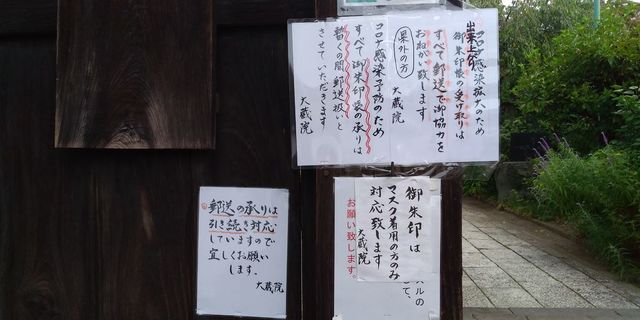 コロナ感染拡大のため
出来上がり
御朱印帳の受け取りは
すべて郵送で御協力を
おねがい致します
大蔵院
県外の方
コロナ感染予防のため
すべて御朱印帳の承りは
暫くの間郵送扱いと
させていただきます
大蔵院
御朱印は
マスク着用の方のみ
対応致します
大蔵院
お願い致します。
郵送の承りは
引き続き対応
していますので
宜しくお願い
します。
大蔵院